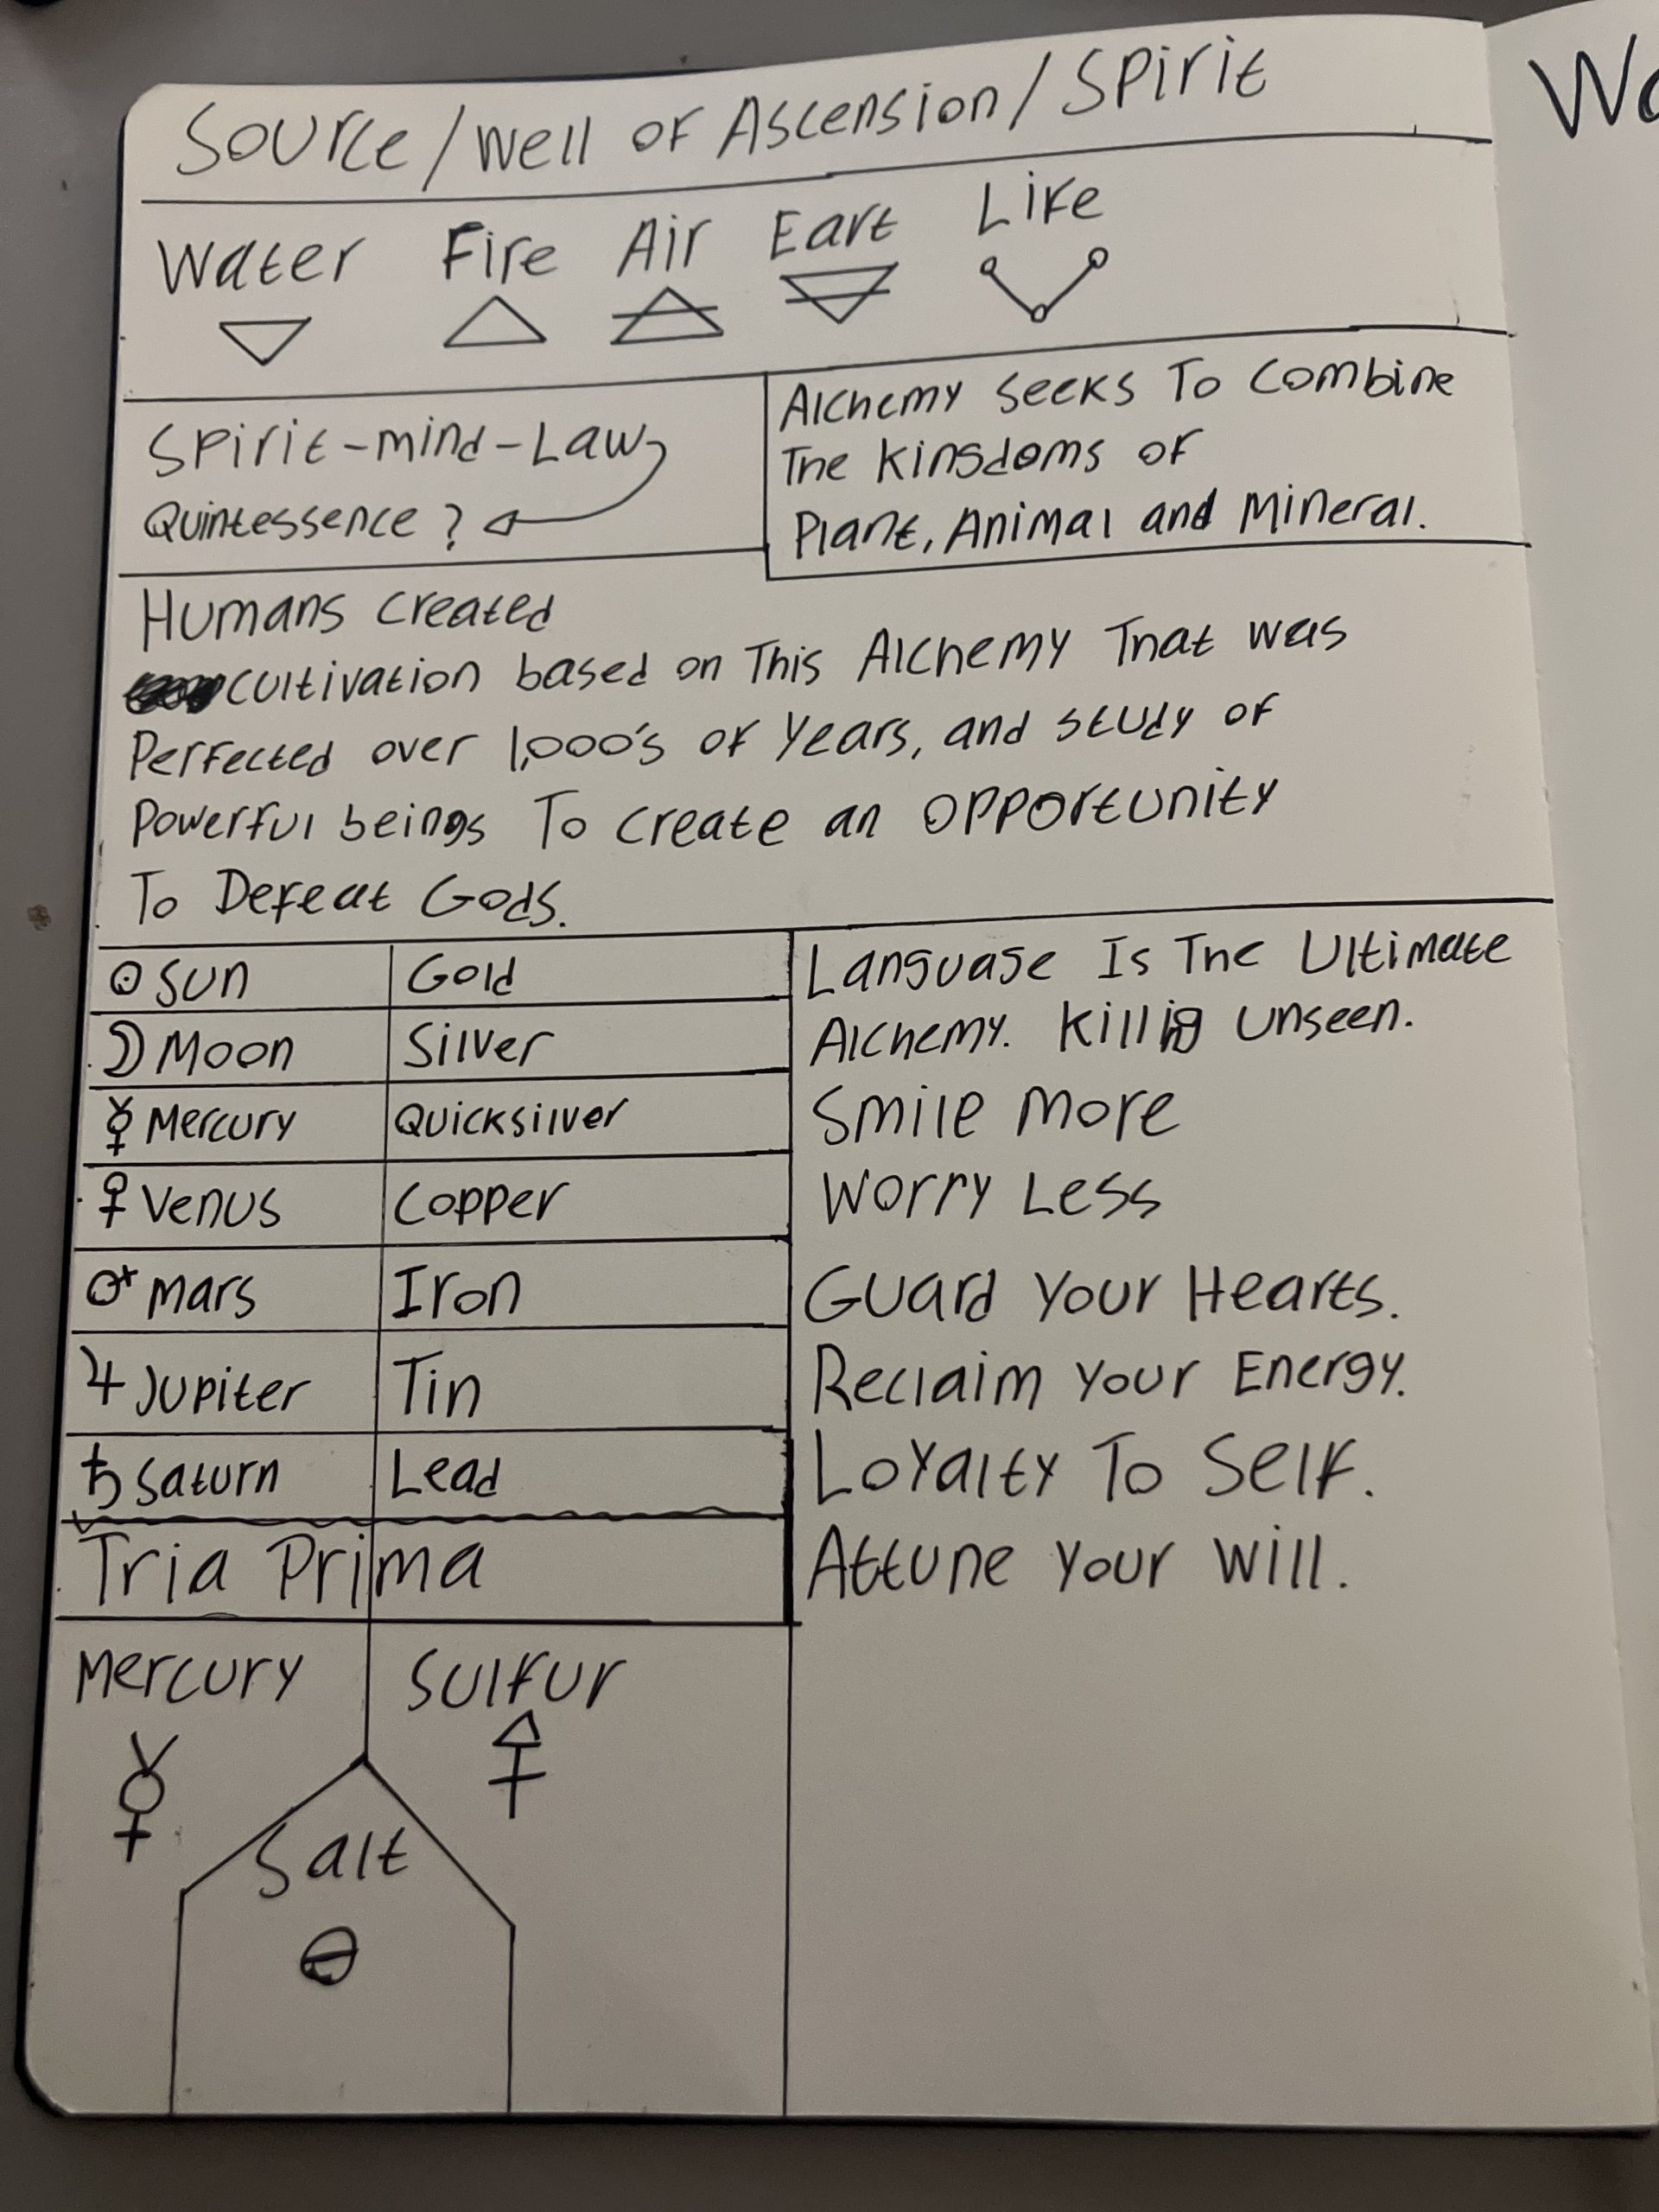 Source/Well of Ascension/Spirit
Water Fire Air Eart Life
Spirit-mind-Law
Quintessence?
Alchemy seeks To Combine
The Kingdoms of
Plant, Animal and Mineral.
Humans created
cultivation based on This Alchemy That was
Perfected over 1,000's of Years, and study of
Powerful beings To create an opportunity
To Defeat Gods.
☉ Sun Gold
☽ Moon Silver
☿ Mercury Quicksilver
♀ Venus Copper
♂ Mars Iron
♃ Jupiter Tin
♄ Saturn Lead
Tria Prima
Mercury Sulfur
☿
Salt
Language Is The Ultimate
Alchemy. Killig Unseen.
Smile More
Worry Less
Guard Your Hearts.
Reclaim Your Energy.
Loyalty To Self.
Attune Your Will.